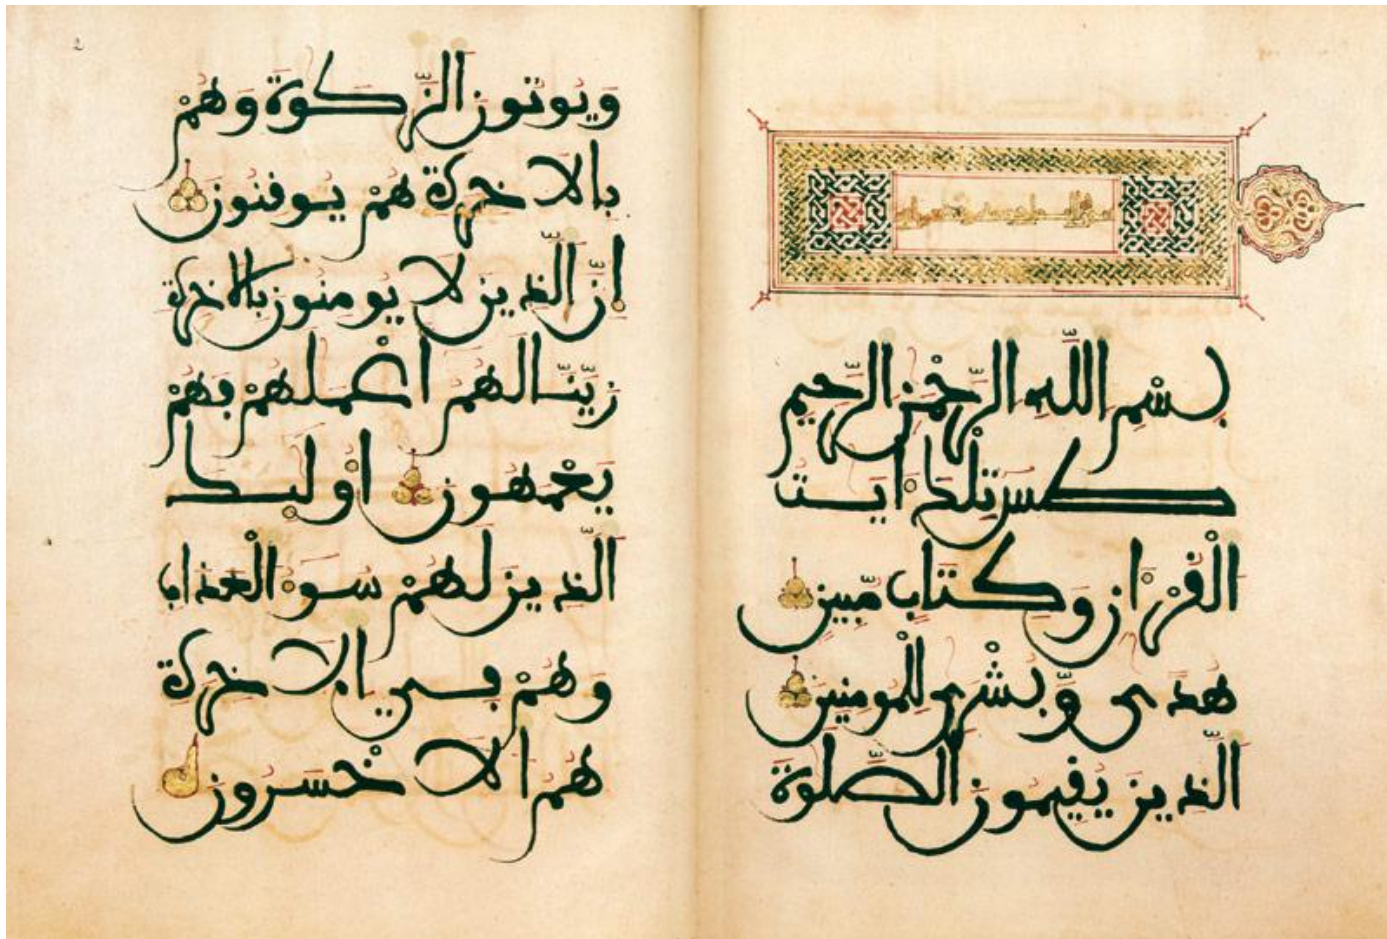 بسم الله الرحمن الرحيم
طس تلك ءايت
القرءان وكتاب مبين
هدى وبشرى للمومنين
الذين يقيمون الصلوة
2
ويوتون الزكوة وهم
بالاخرة هم يوقنون
إن الذين لا يومنون بالاخرة
زينا لهم أعملهم فهم
يعمهون أوليك
الذين لهم سوء العذاب
وهم في الاخرة
هم الاخسرون